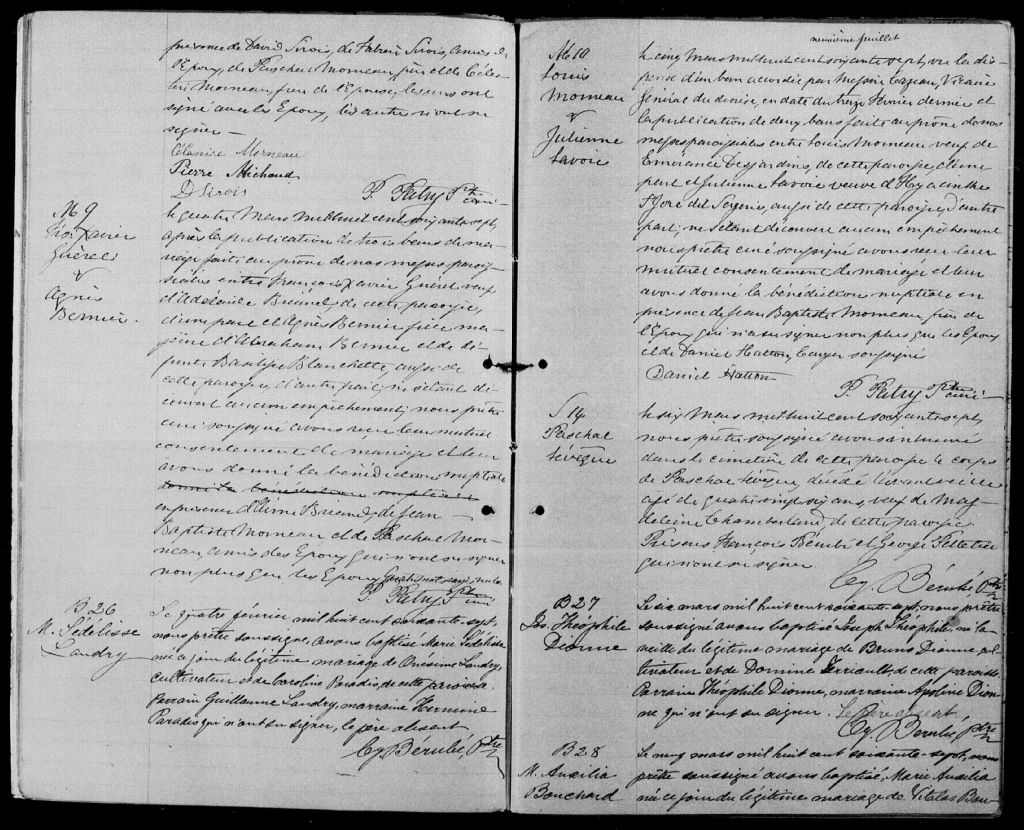 présence de David Sirois, de Fabien Sirois, amis de
l'Epoux, de Paschal Morneau, père et de Céles-
tin Morneau, frère de l'Epouse, lesquels ont
signé avec les Epoux, les autres n'ont su
signer —
Célanire Morneau
Pierre Michaud
D Sirois
P. Patry Ptre
curé
M 9
Frs. Xavier
Guéret
&
Agnès
Bernier.
Le quatre Mars mil huit cent soixante sept,
après la publication de trois bans de ma-
riage faite au prône de nos messes parois-
siales entre François Xavier Guéret veuf
d'Adelaide Breand, de cette paroisse,
d'une part et Agnès Bernier fille ma-
jeure d'Abraham Bernier et de dé-
funte Basilisse Blanchette, aussi de
cette paroisse, d'autre part; ne s'étant dé-
couvert aucun empêchement, nous prêtre
curé soussigné avons reçu leur mutuel
consentement de mariage et leur
avons donné la bénédiction nuptiale
donné la bénédiction nuptiale
en présence d' Breand, de Jean
Baptiste Morneau et de Paschal Mor-
neau, amis des Epoux qui n'ont su signer
non plus que les Epoux
P. Patry Ptre
curé
B 26
M. Sédélisse
Landry
Le quatre février mil huit cent soixante-sept,
nous prêtre soussigné, avons baptisé Marie Sédélisse
née ce jour du légitime mariage de Onésime Landry,
cultivateur et de Caroline Paradis, de cette paroisse.
Parrain Guillaume Landry, marraine Hermine
Paradis qui n'ont su signer, le père absent
Cy Bérubé, Ptre
neuvième feuillet
M 10
Louis
Morneau
&
Julienne
Savoie
Le cinq Mars mil huit cent soixante sept, vu la dis-
pense d'un ban accordée par Messire Cazeau, Vicaire
Général du diocèse, en date du treize Février dernier et
la publication de deux bans faite au prône de nos
messes paroissiales entre Louis Morneau veuf de
Emérence Desjardins, de cette paroisse, d'une
part et Julienne Savoie veuve d'Hyacinthe
St Joré dit Sergerie, aussi de cette paroisse, d'autre
part; ne s'étant découvert aucun empêchement
nous prêtre curé soussigné avons reçu leur
mutuel consentement de mariage et leur
avons donné la bénédiction nuptiale en
présence de Jean Baptiste Morneau, frère de
l'Epoux qui n'a su signer non plus que les Epoux
et de Daniel Hatton, soussigné
Daniel Hatton
P. Patry Ptre
curé
S 14
Paschal
Lévêque
Le six Mars mil huit cent soixante sept,
nous prêtre soussigné avons inhumé
dans le cimetière de cette paroisse le corps
de Paschal Lévêque, décédé l'avant veille
agé de quatre vingt six ans, veuf de Mag-
deleine Chamberland de cette paroisse
Présens François Bérubé et George Pelletier
qui n'ont su signer
Cy. Bérubé Ptre
B 27
Jos. Théophile
Dionne
Le six mars mil huit cent soixante sept, nous prêtre
soussigné avons baptisé Joseph Théophile, né la
veille du légitime mariage de Bruno Dionne cul-
tivateur et de Domine Terriault, de cette paroisse.
Parrain Théophile Dionne, marraine Apoline Dion-
ne qui n'ont su signer. Le père absent
Cy. Bérubé Ptre
B 28
M. Auxilia
Bouchard
Le neuf mars mil huit cent soixante-sept, nous
prêtre soussigné avons baptisé, Marie Auxilia
née ce jour du légitime mariage de Vitalas Bou-